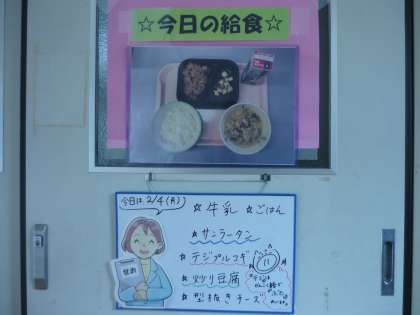 ☆今日の給食☆
今日は 2/4(月)
☆ 牛乳 ☆ ごはん
☆ サンラータン
☆ テジプルコギ
☆ 炒り豆腐
☆ 型抜きチーズ